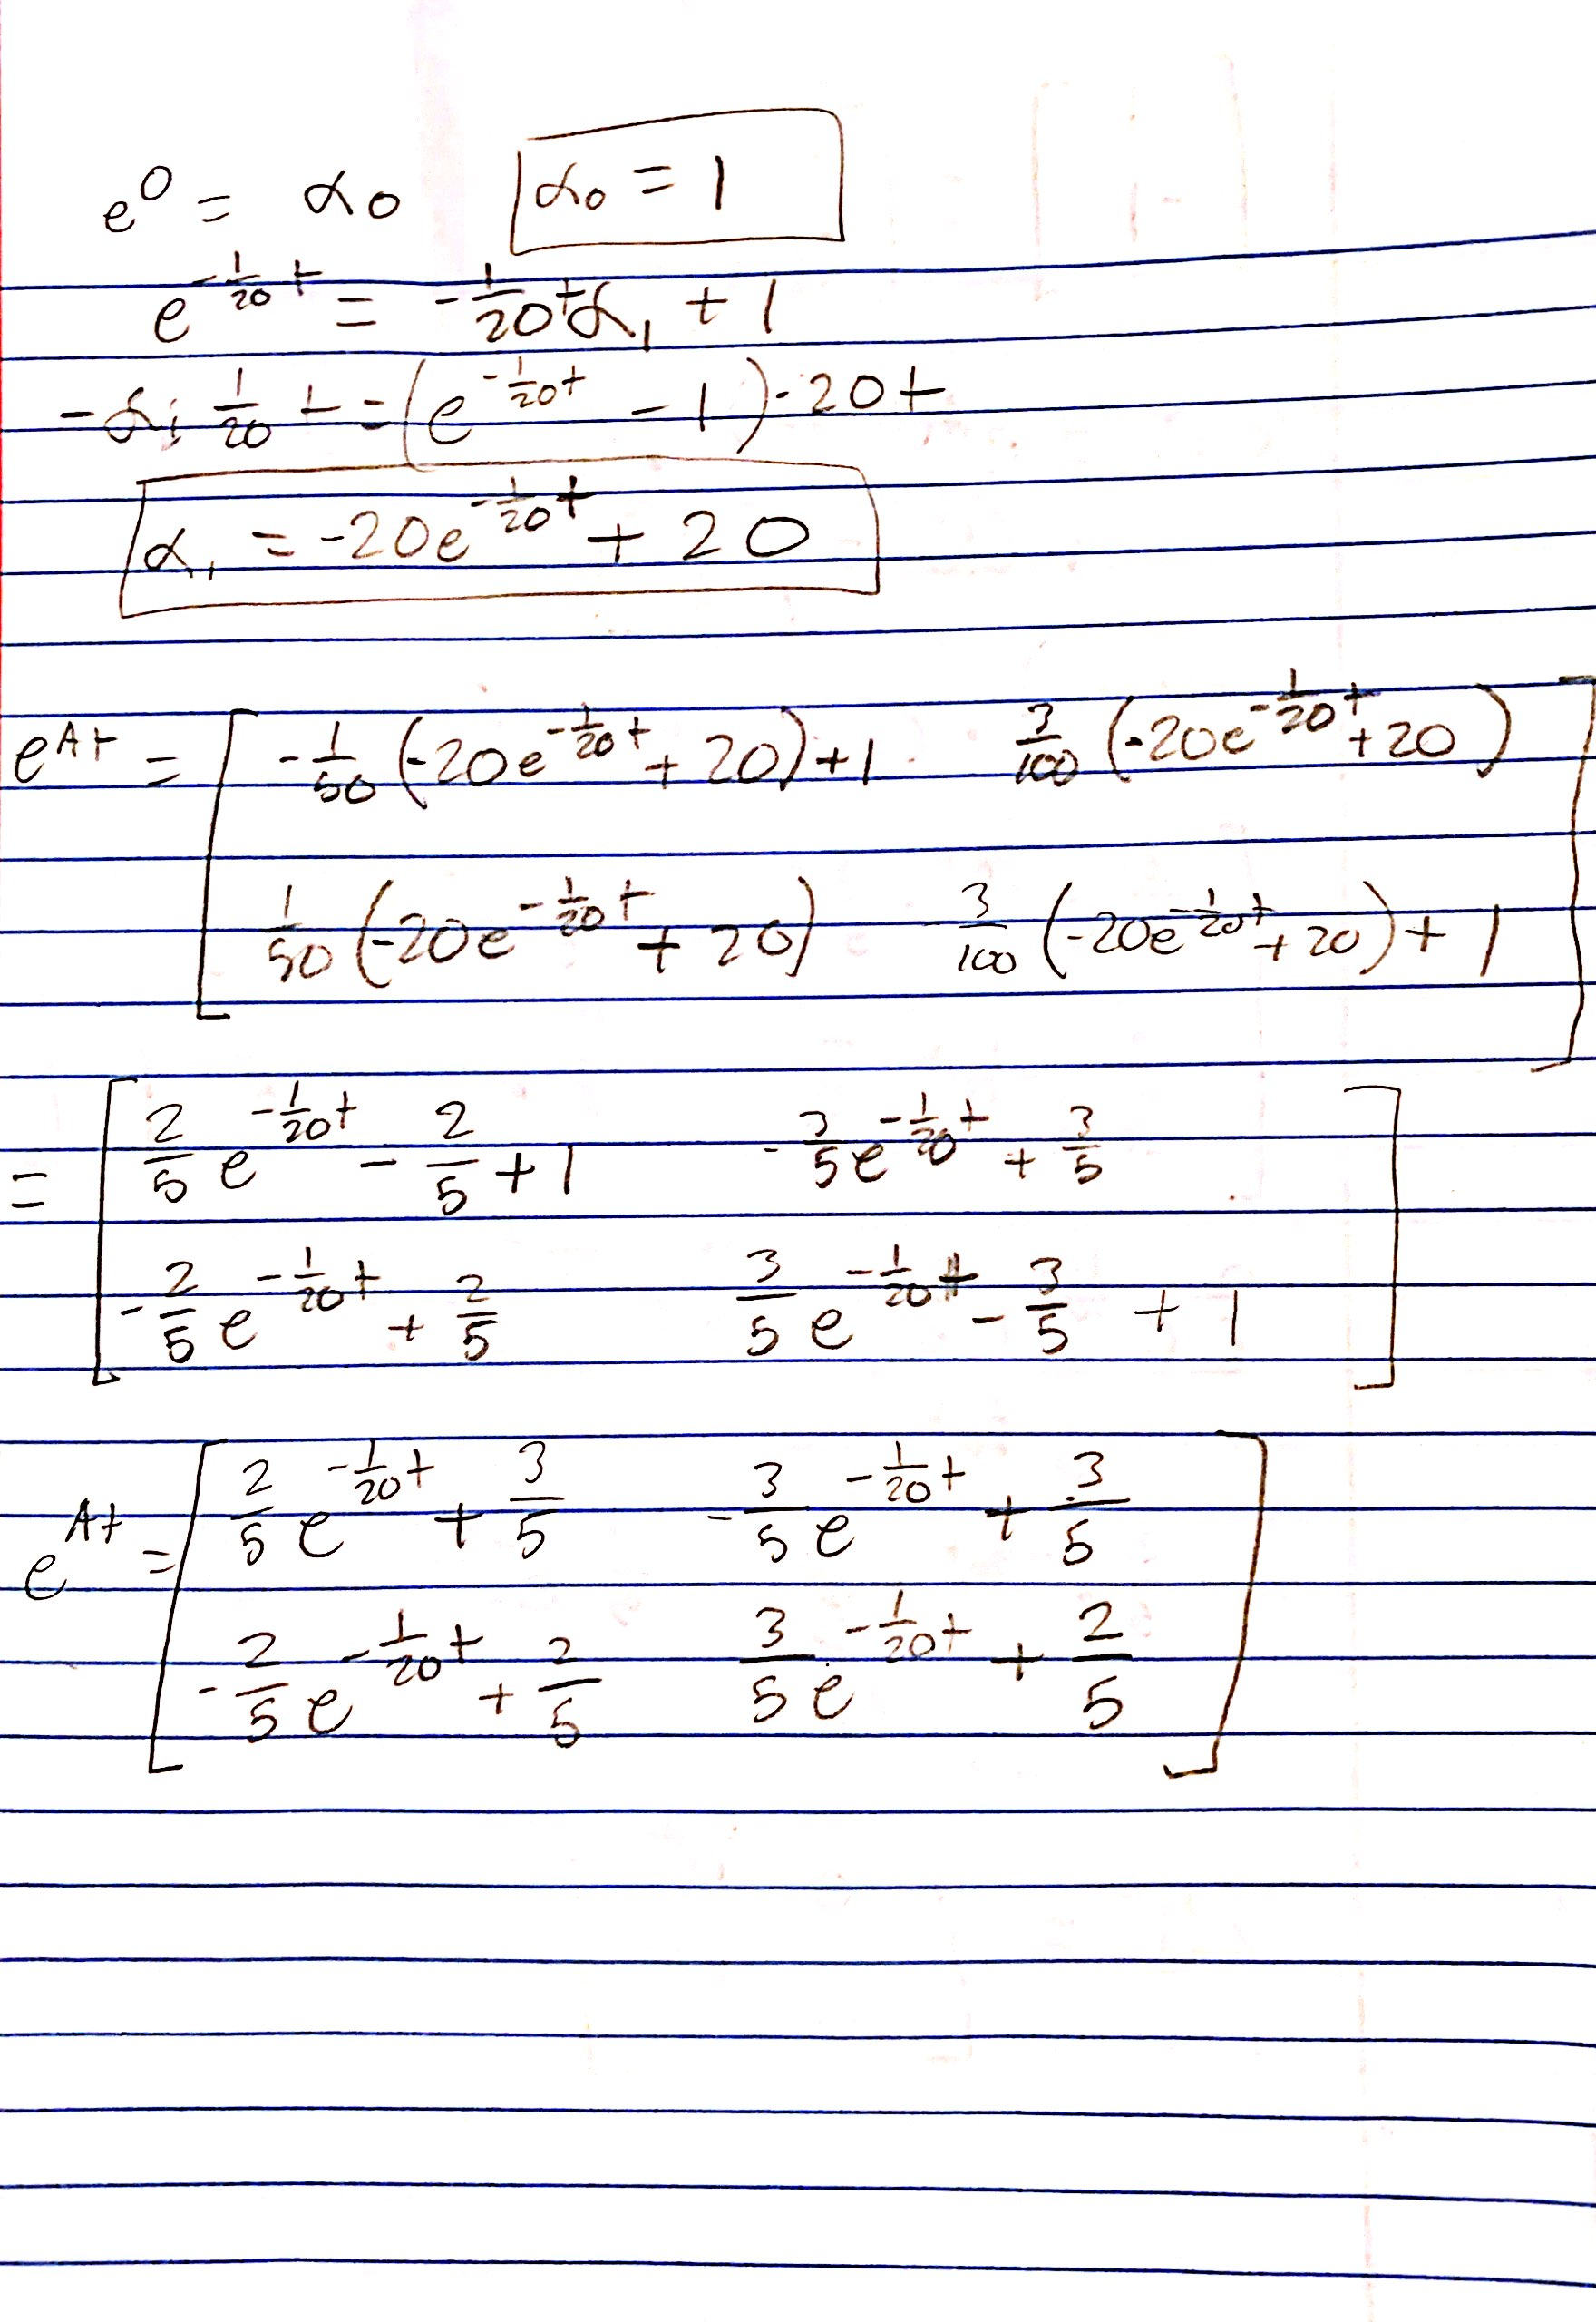 e^0 = α₀   α₀ = 1
e^{-1/20 t} = -1/20 t α₁ + 1
-α₁ 1/20 t = (e^{-1/20 t} - 1) · 20t
α₁ = -20e^{-1/20 t} + 20
e^{At} = [ -1/50 (-20e^{-1/20 t} + 20) + 1   3/100 (-20e^{-1/20 t} + 20)
1/50 (-20e^{-1/20 t} + 20)   - 3/100 (-20e^{-1/20 t} + 20) + 1 ]
= [ 2/5 e^{-1/20 t} - 2/5 + 1   -3/5 e^{-1/20 t} + 3/5
-2/5 e^{-1/20 t} + 2/5   3/5 e^{-1/20 t} - 3/5 + 1 ]
e^{At} = [ 2/5 e^{-1/20 t} + 3/5   -3/5 e^{-1/20 t} + 3/5
-2/5 e^{-1/20 t} + 2/5   3/5 e^{-1/20 t} + 2/5 ]